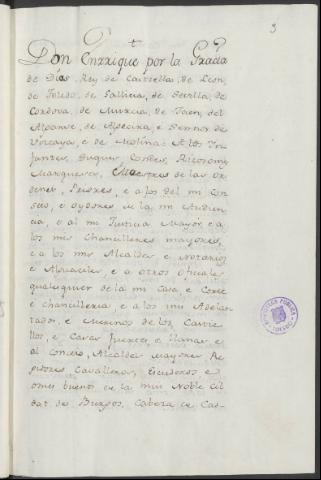 3
Don Enrrique por la Gracia
de Dios, Rey de Castella, de Leon,
de Toledo, de Gallicia, de Sevilla, de
Cordova, de Murcia, de Jaen, del
Algarve, de Algecira, e Sennor de
Viscaya, e de Molina: A los Yn-
fantes, Duques, Condes, Ricosomes,
Marqueses, Maestres de las Or-
denes, Priores, e a los del mi Con-
sejo, e Oydores de la mi Audien-
cia, e al mi Justicia Mayor, e a
los mis Chancilleres mayores,
e a los mis Alcaldes e Notarios
e Alguaciles, e a otros Oficiales
qualesquier de la mi Casa e Corte
e chancilleria, e a los mis Adelan-
tados, e Merinos de los Castie-
llos, e Casas fuertes, e llanas, e
al Concejo, Alcaldes mayores, Re-
gidores, Cavalleros, Escuderos e
omes buenos de la muy Noble Cib-
dat de Burgos, Cabeza de Cas-